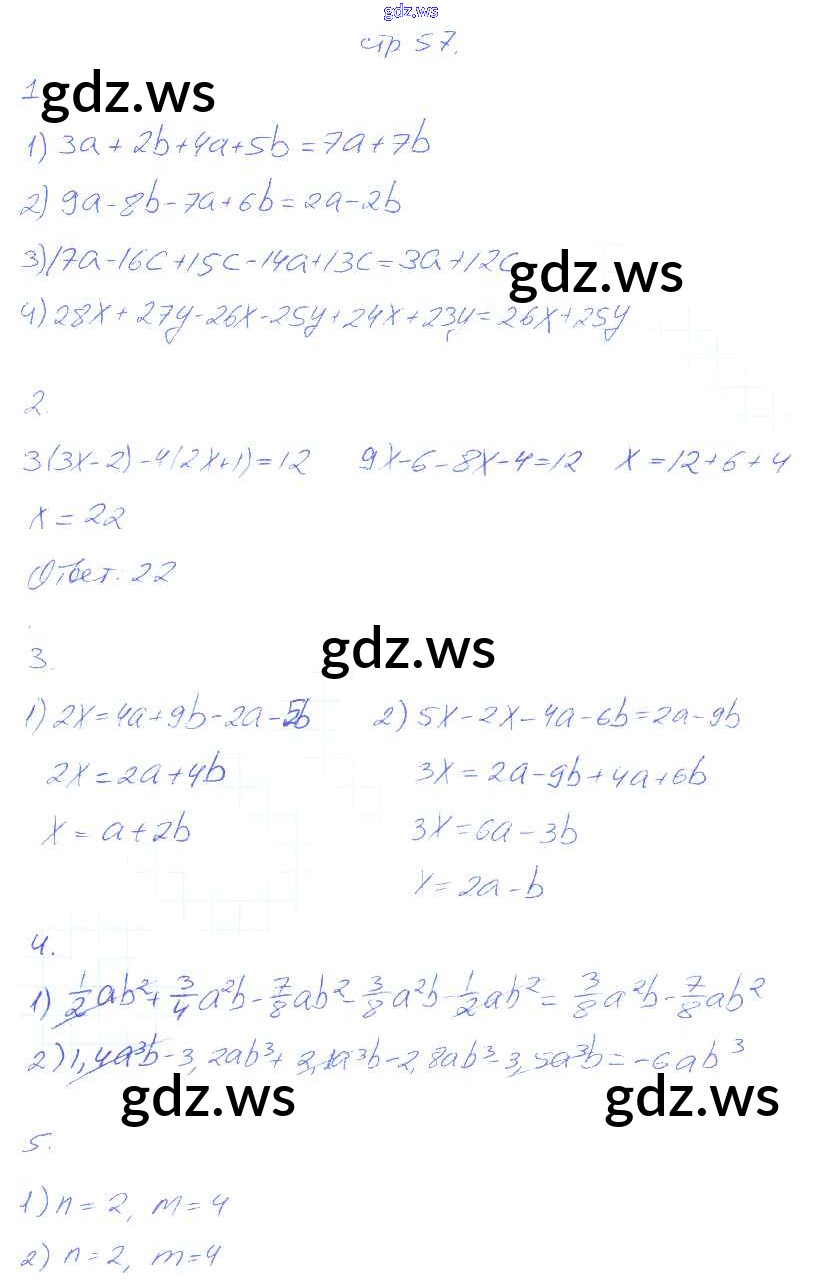 gdz.ws
стр 57.
1 gdz.ws
1) 3a + 2b + 4a + 5b = 7a + 7b
2) 9a - 8b - 7a + 6b = 2a - 2b
3) 17a - 16c + 15c - 14a + 13c = 3a + 12c
gdz.ws
4) 28x + 27y - 26x - 25y + 24x + 23y = 26x + 25y
2.
3(3x - 2) - 4(2x + 1) = 12 9x - 6 - 8x - 4 = 12 x = 12 + 6 + 4
x = 22
Ответ: 22
gdz.ws
3.
1) 2x = 4a + 9b - 2a - 5b 2) 5x - 2x - 4a - 6b = 2a - 9b
2x = 2a + 4b 3x = 2a - 9b + 4a + 6b
x = a + 2b 3x = 6a - 3b
x = 2a - b
4.
1) 1/2 ab² + 3/4 a²b - 7/8 ab² - 3/8 a²b - 1/2 ab² = 3/8 a²b - 7/8 ab²
2) 1,4a³b - 3,2ab³ + 2,1a³b - 2,8ab³ - 3,5a³b = -6ab³
gdz.ws gdz.ws
5.
1) n = 2, m = 4
2) n = 2, m = 4